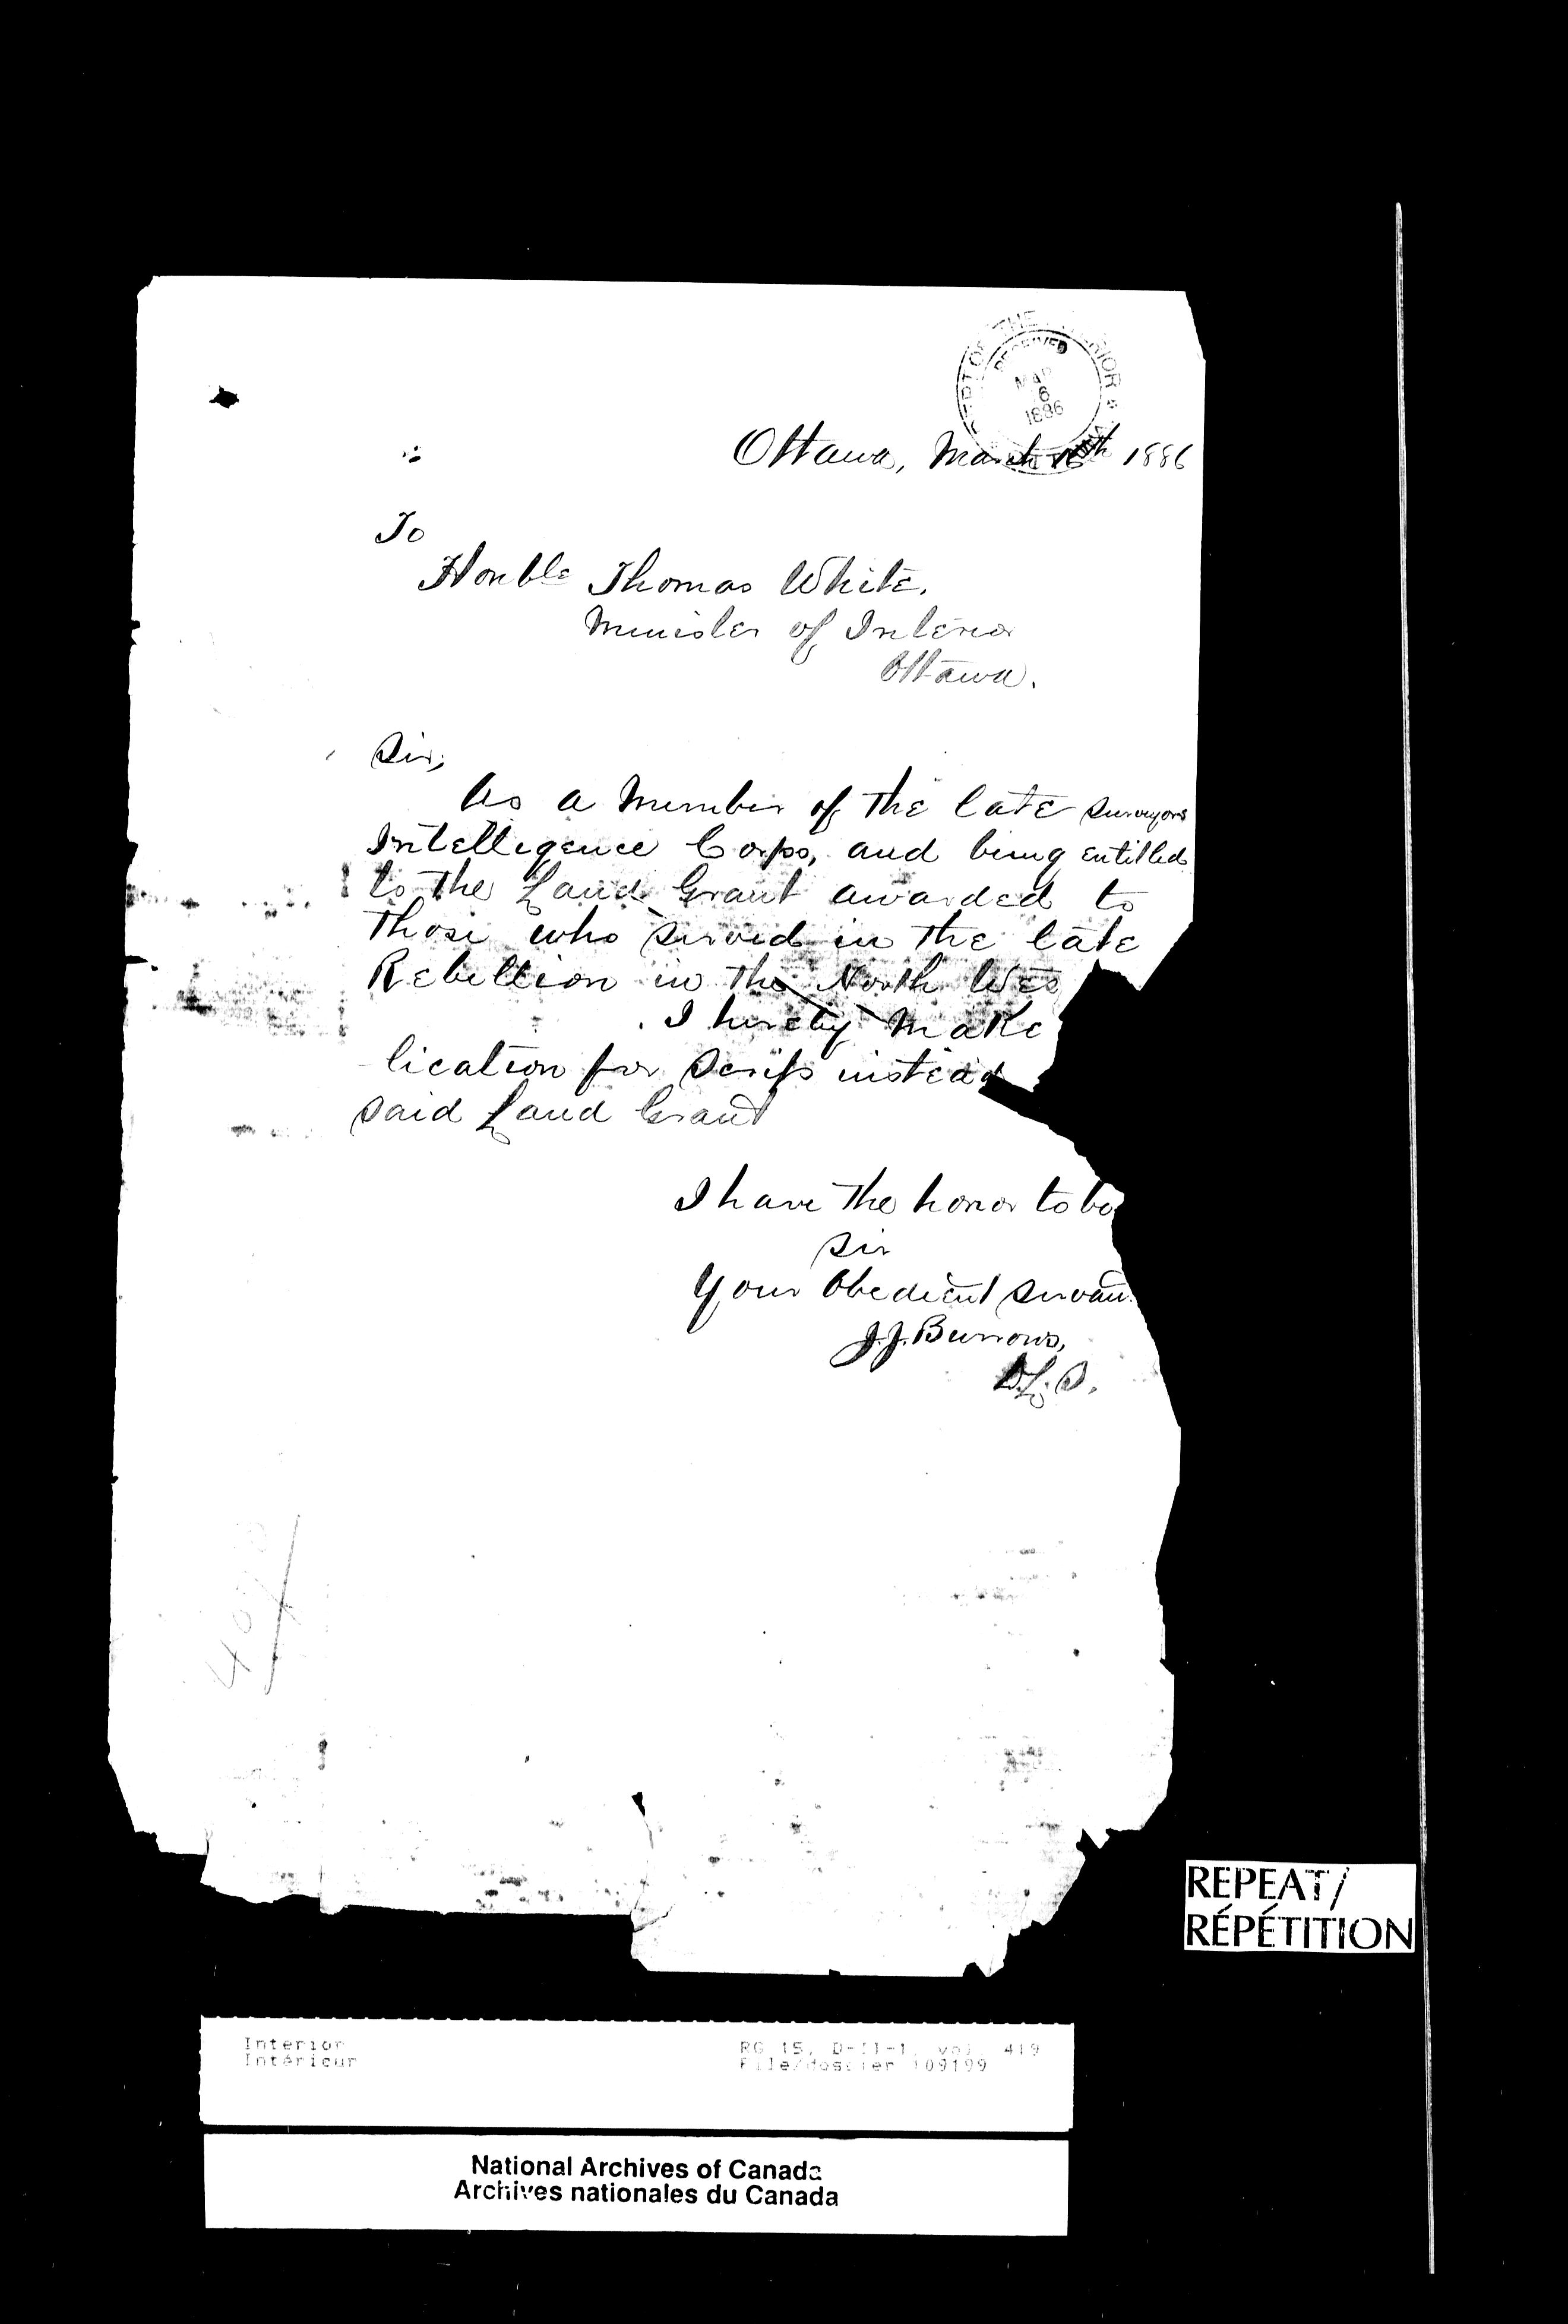 DEPT OF THE INTERIOR
RECEIVED
MAR
6
1886
Ottawa, March 1886
To
Honble Thomas White.
Minister of Interior
Ottawa.
Sir,
As a Member of the late Surveyors
Intelligence Corps, and being entitled
to the Land Grant awarded to
those who served in the late
Rebellion in the North Wes
I hereby make
lication for Scrip instead
said Land Grant
I have the honor to be
Sir
Your Obedient Servan
J.J. Burrows,
D.L.S.
REPEAT/
RÉPÉTITION
Interior
Intérieur
RG 15, D-II-1, vol. 419
File/dossier 109199
National Archives of Canada
Archives nationales du Canada